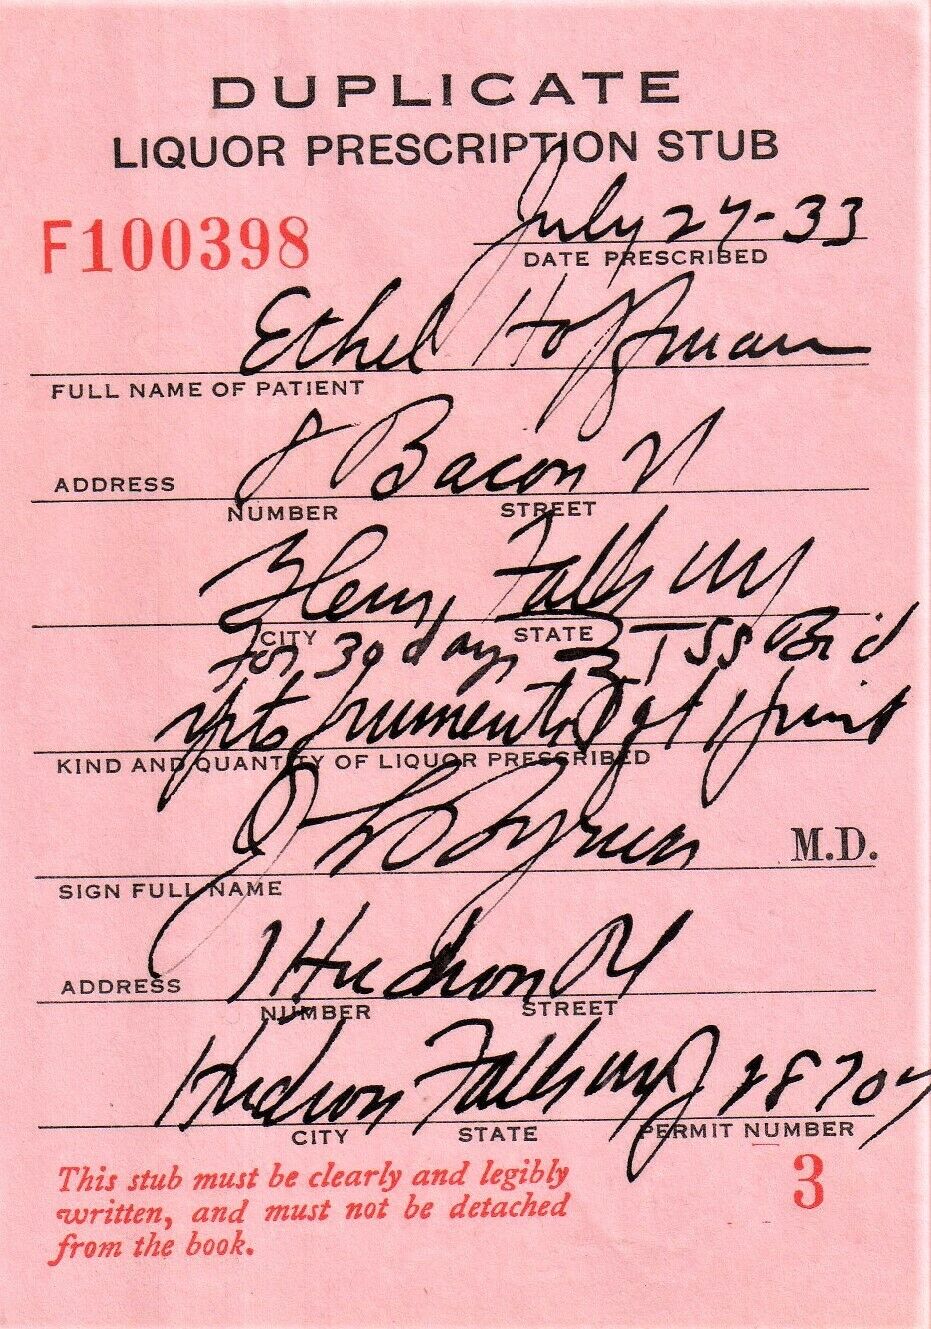 DUPLICATE
LIQUOR PRESCRIPTION STUB
F100398
July 27-33
DATE PRESCRIBED
Ethel Hoffman
FULL NAME OF PATIENT
8 Bacon St
ADDRESS
NUMBER STREET
Glens Falls NY
CITY STATE
for 30 days Bid
frumenti 1 pint
KIND AND QUANTITY OF LIQUOR PRESCRIBED
M.D.
SIGN FULL NAME
1 Hudson St
ADDRESS
NUMBER STREET
Hudson Falls NY
CITY STATE PERMIT NUMBER
This stub must be clearly and legibly
written, and must not be detached
from the book.
3